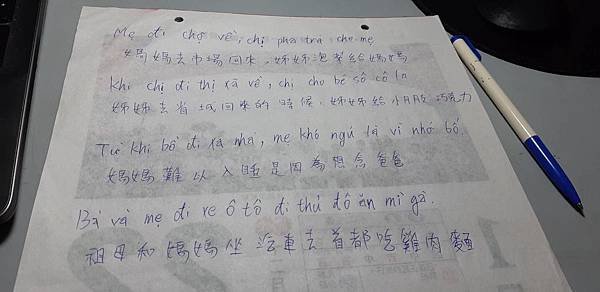 Mẹ đi chợ về, chị pha trà cho mẹ
媽媽去市場回來,姊姊泡茶給媽媽
Khi chị đi thị xã về, chị cho bé sô cô la
姊姊去省城回來的時候,姊姊給小朋友巧克力
Từ khi bố đi xa nhà, mẹ khó ngủ là vì nhớ bố.
媽媽難以入睡是因為想念爸爸
Bà và mẹ đi xe ô tô đi thủ đô ăn mì gà.
祖母和媽媽坐汽車去首都吃雞肉麵